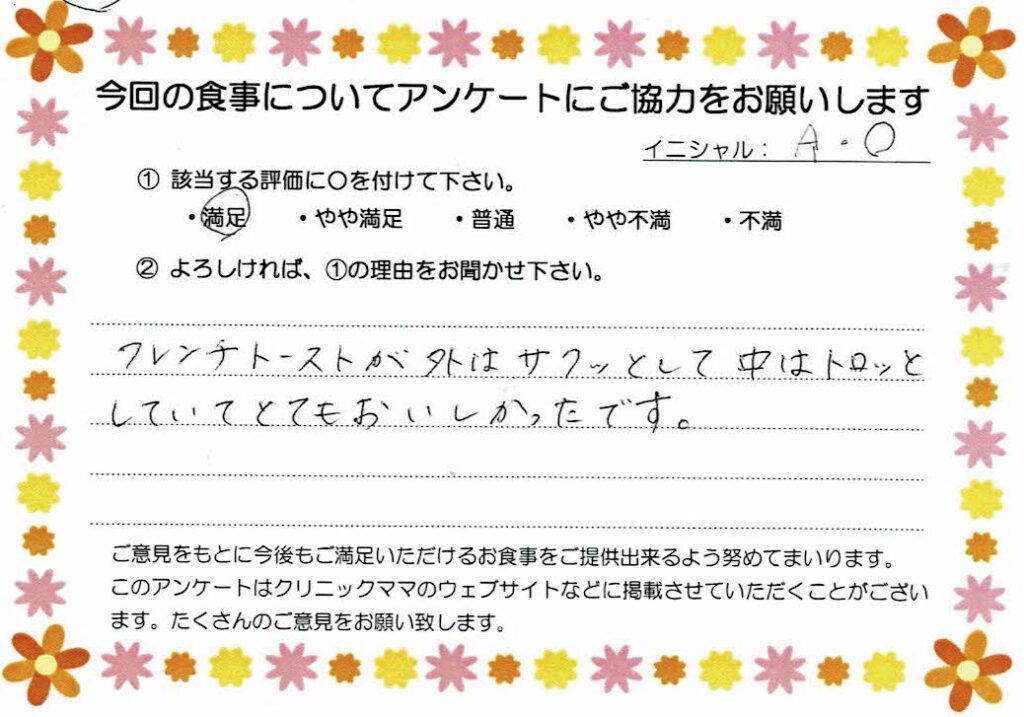 今回の食事についてアンケートにご協力をお願いします
イニシャル： A・O
① 該当する評価に○を付けて下さい。
・満足 ・やや満足 ・普通 ・やや不満 ・不満
② よろしければ、①の理由をお聞かせ下さい。
フレンチトーストが外はサクッとして中はトロッと
していてとてもおいしかったです。
ご意見をもとに今後もご満足いただけるお食事をご提供出来るよう努めてまいります。
このアンケートはクリニックママのウェブサイトなどに掲載させていただくことがござい
ます。たくさんのご意見をお願い致します。